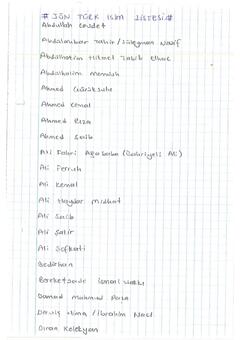 # JÖN TÜRK İSİM LİSTESİ #
Abdullah Cevdet
Abdülekber Tahir / Süleyman Nazif
Abdülhakim Hikmet
Abdülhalim Memduh
Ahmed
Ahmed Kemal
Ahmed Rıza
Ahmed Saib
Ali Fahri Ağababa (Bahriyeli Ali)
Ali Ferruh
Ali Kemal
Ali Haydar Midhat
Ali Saib
Ali Şakir
Ali Şefkati
Bedirhan
Bereketzade İsmail Hakkı
Damad Mahmud Paşa
Derviş Hima / İbrahim Naci
Diran Kelekyan